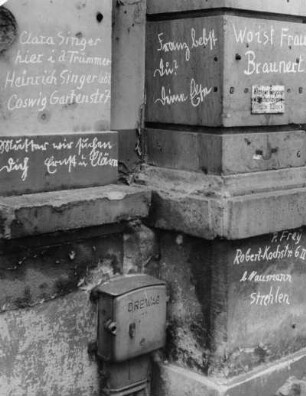 Clara Singer
hier i. d Trümmer
Heinrich Singer lebt
Coswig Gartenstr 1
Mutter wir suchen
Dich Ernst u. Clärn
Franz lebst
Du?
Deine Else
Wo ist Frau
Braunert
F. Frey
Robert-Kochstr 6 II
b. Naumann
Strehlen
DREWAG